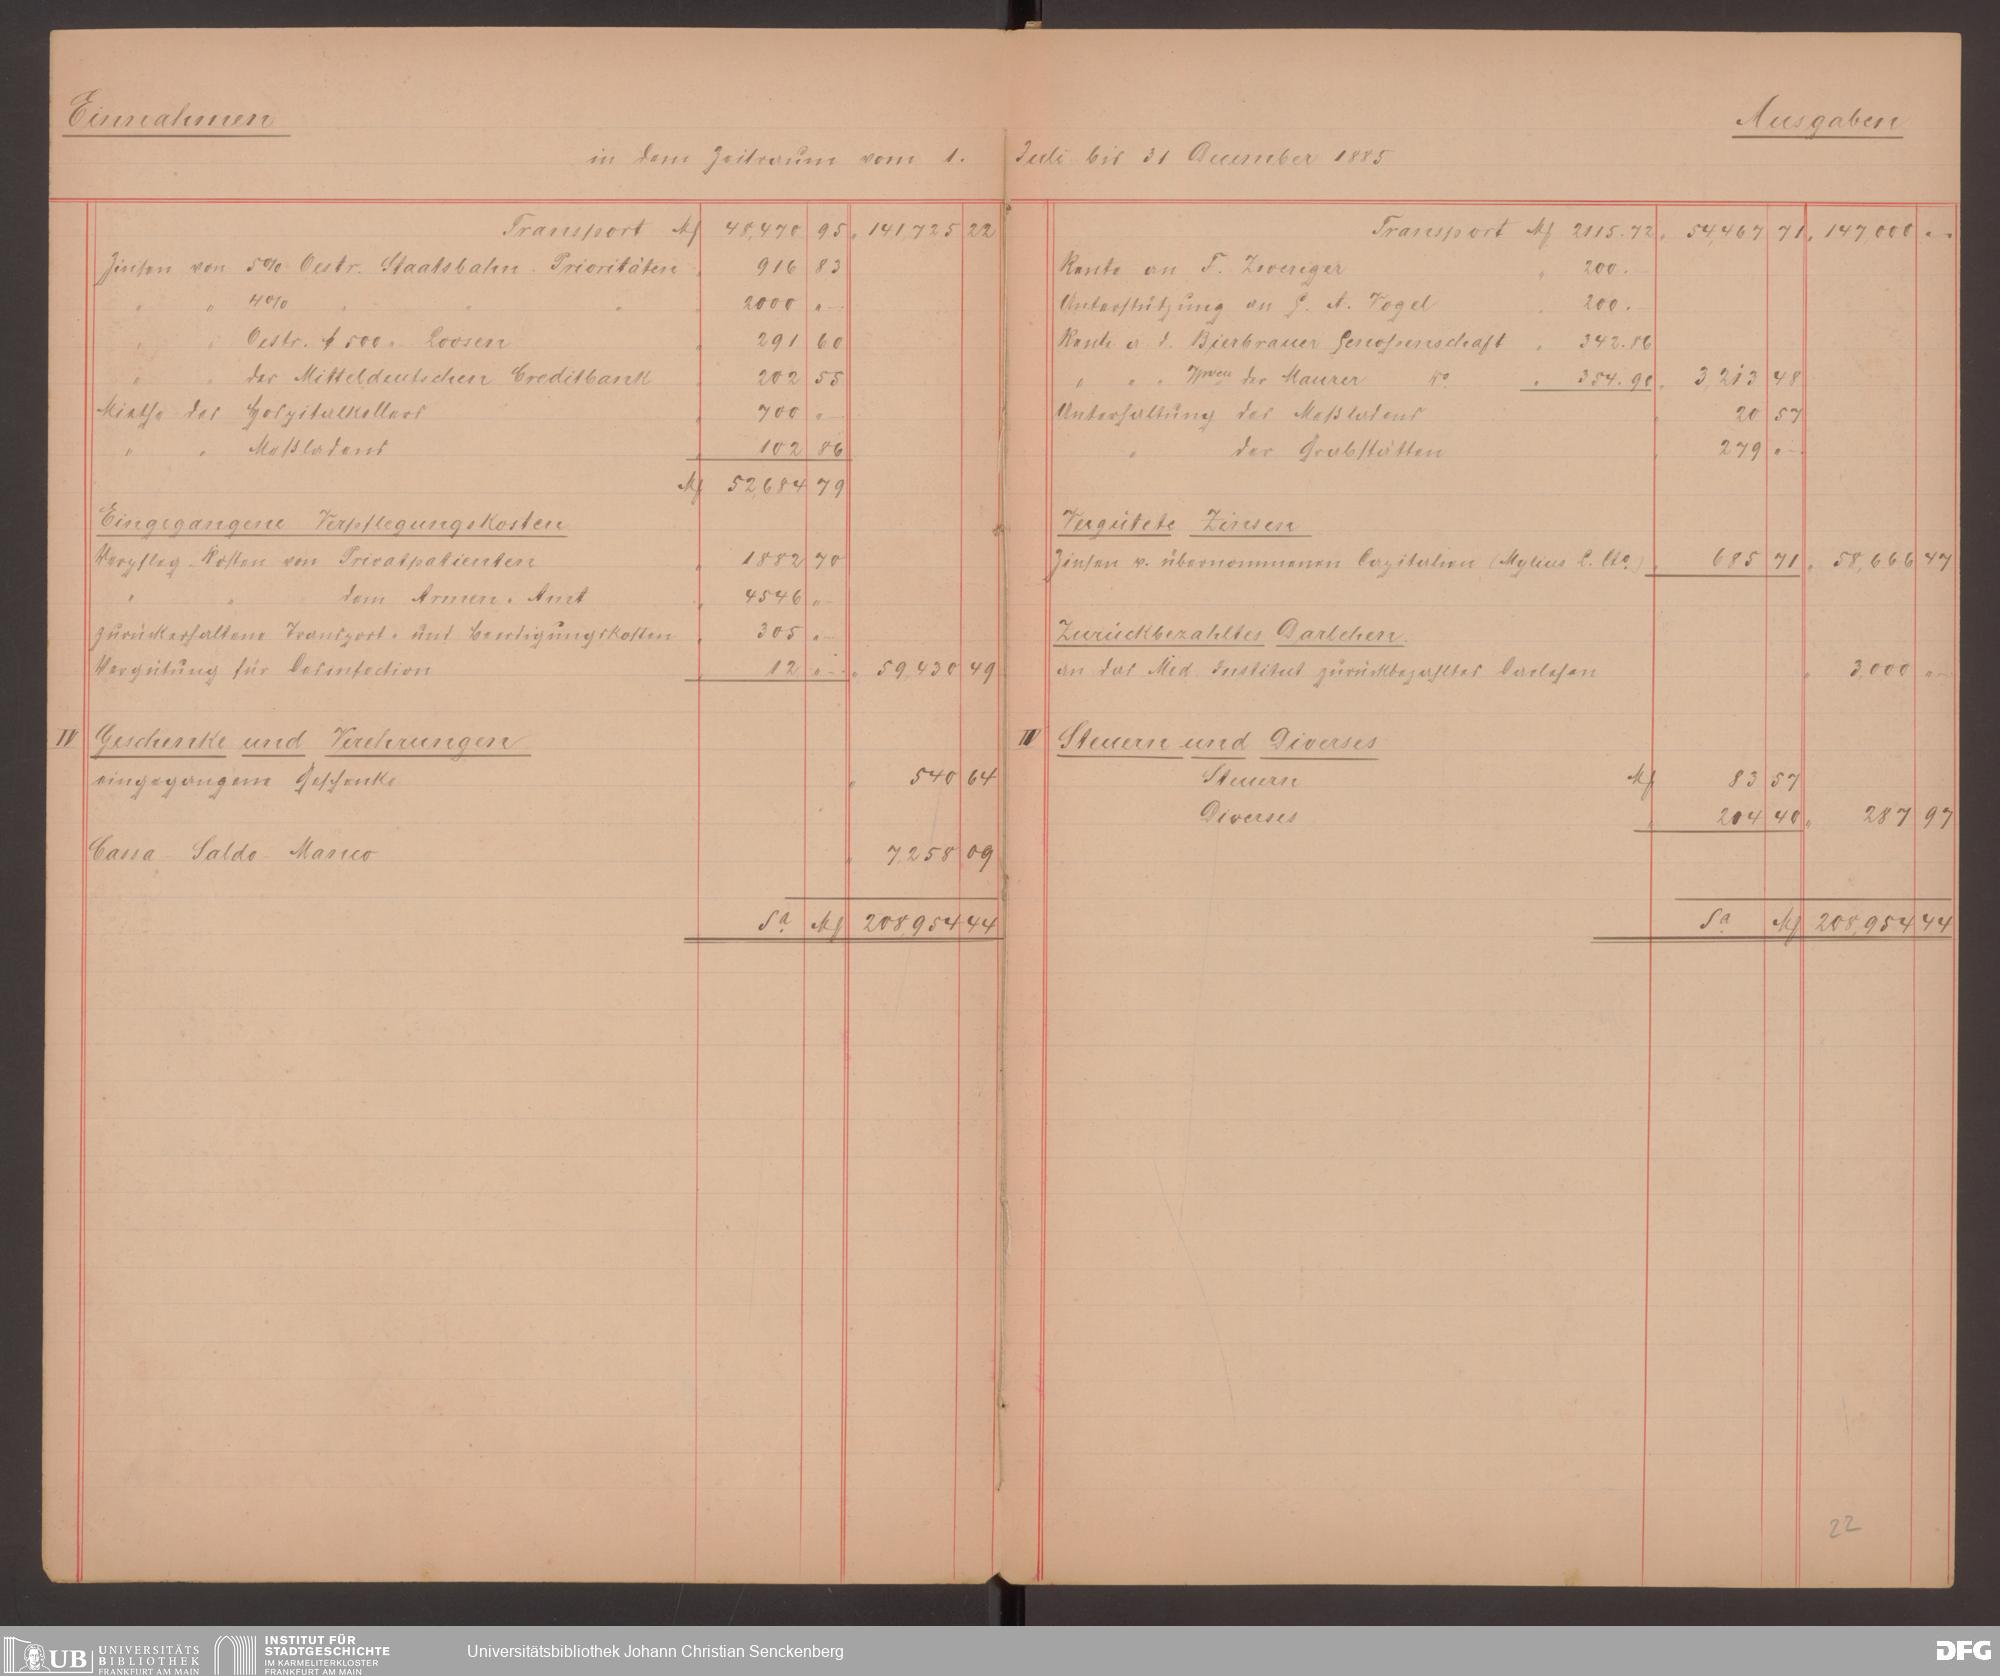 Einnahmen
in dem Zeitraum vom 1.
Transport M 48,470 95 " 141,725 22
Zinsen von 5% Oestr. Staatsbahn Prioritäten " 916 83
" " 4% " " " " 2000 " —
" " Oestr. f 500 " Loosen " 291 60
" " der Mitteldeutschen Creditbank " 202 55
Miethe des Hospitalkellers " 700 " —
" " Meßladens " 102 86
M 52,684 79
Eingegangene Verpflegungskosten
Verpfleg. Kosten von Privatpatienten " 1882 70
" " dem Armen-Amt " 4546 " —
zurückerhaltene Transport- und Beerdigungskosten " 305 " —
Vergütung für Desinfection " 12 " — " 59,430 49
IV Geschenke und Verehrungen
eingegangene Geschenke " 540 64
Cassa Saldo Manco " 7,258 09
Sa. M 208,954 44
Ausgaben
Juli bis 31 December 1885
Transport M 2115.72 " 54,467 71 " 147,000 " —
Rente an F. Zweriger " 200. —
Unterstützung an G. A. Vogel " 200. —
Rente a. d. Bierbrauer Genossenschaft " 342.86
" " " der Maurer do " 354.90 " 3,213 48
Unterhaltung des Meßladens " 20 57
" der Grabstätten " 279 " —
Vergütete Zinsen
Zinsen v. übernommenen Capitalien (Mylius C. Cto.) " 685 71 " 58,666 47
Zurückbezahltes Darlehen.
an das Med. Institut zurückbezahltes Darlehen " 3,000 " —
IV Steuern und Diverses
Steuern M 83 57
Diverses " 204 40 " 287 97
Sa. M 208,954 44
22
UB UNIVERSITÄTS
BIBLIOTHEK
FRANKFURT AM MAIN
INSTITUT FÜR
STADTGESCHICHTE
IM KARMELITERKLOSTER
FRANKFURT AM MAIN
Universitätsbibliothek Johann Christian Senckenberg
DFG